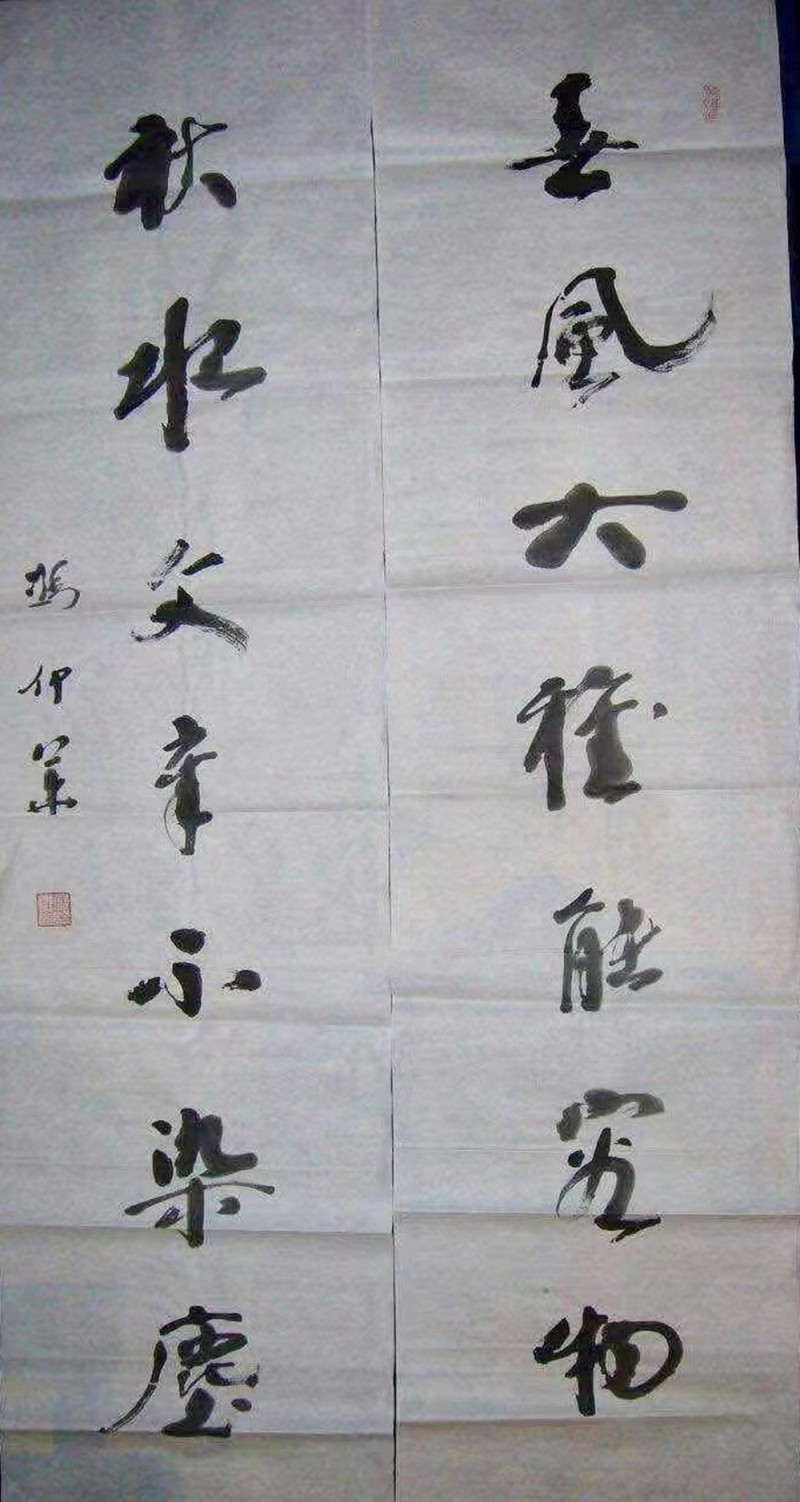 春風大雅能容物
秋水文章不染塵
馮仲華